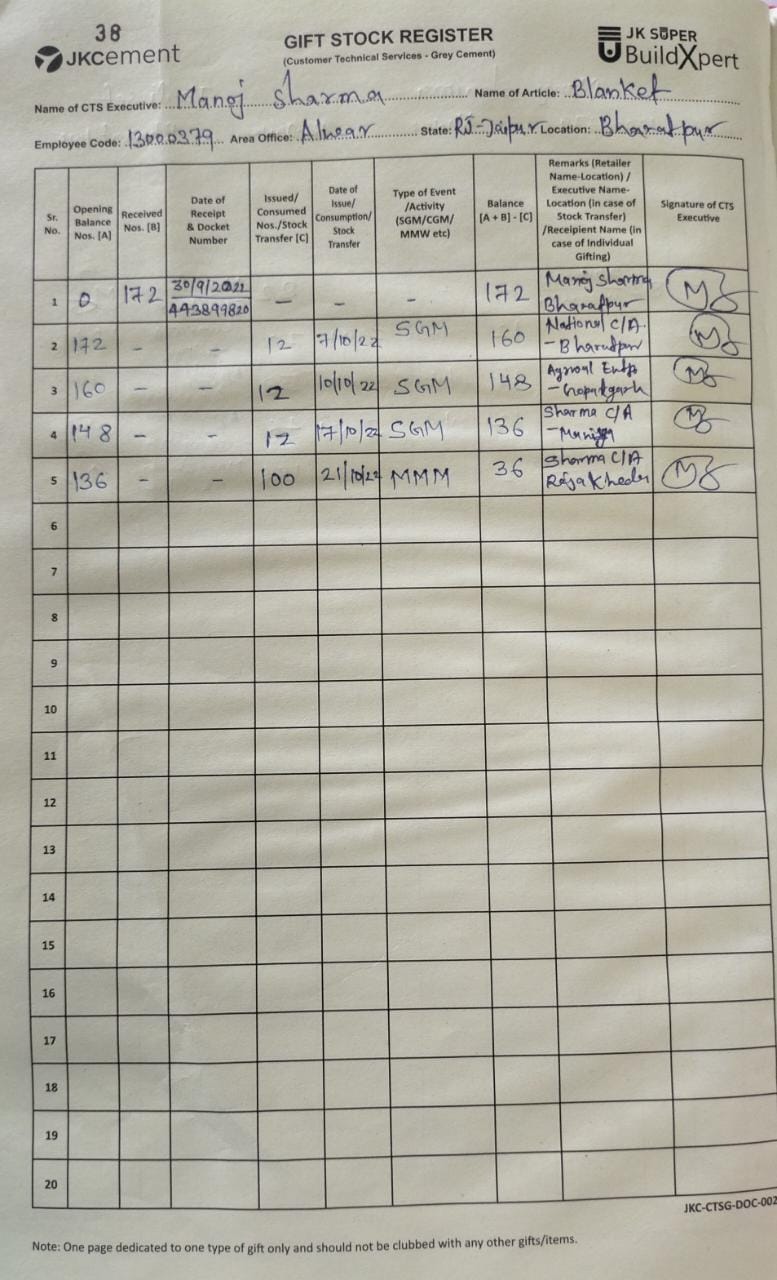 38
JKCement
GIFT STOCK REGISTER
(Customer Technical Services - Grey Cement)
JK SUPER
BuildXpert
Name of CTS Executive: Manoj Sharma Name of Article: Blanket
Employee Code: 13000379 Area Office: Alwar State: RJ-Jaipur Location: Bharatpur
Sr. No. Opening Balance Nos. [A] Received Nos. [B] Date of Receipt & Docket Number Issued/ Consumed Nos./Stock Transfer [C] Date of Issue/ Consumption/ Stock Transfer Type of Event /Activity (SGM/CGM/ MMW etc) Balance [A + B] - [C] Remarks (Retailer Name-Location) / Executive Name- Location (in case of Stock Transfer) /Receipient Name (in case of Individual Gifting) Signature of CTS Executive
1 0 172 30/9/2022 443899820 - - - 172 Manoj Sharma Bharatpur
2 172 - - 12 7/10/22 SGM 160 National C/A. - Bharatpur
3 160 - - 12 10/10/22 SGM 148 Agrwal Entp -
4 148 - - 12 17/10/22 SGM 136 Sharma C/A -
5 136 - - 100 21/10/22 MMM 36 Sharma C/A
6
7
8
9
10
11
12
13
14
15
16
17
18
19
20
JKC-CTSG-DOC-002
Note: One page dedicated to one type of gift only and should not be clubbed with any other gifts/items.